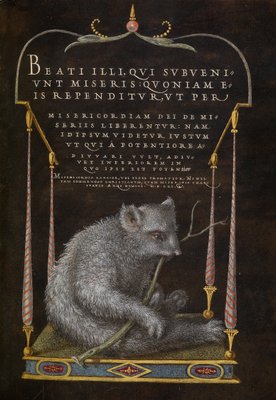 BEATI ILLI, QUI SUBVENI⹀
UNT MISERIS: QUONIAM E⹀
IS REPENDITUR, UT PER
MISERICORDIAM DEI DE MI⹀
SERIIS LIBERENTUR: NAM
ID IPSUM VIDETUR IUSTUM
UT QUI À POTENTIORE A⹀
DIUVARI VULT, ADIU⹀
VET INFERIOREM IN
QUO IPSE EST POTENTIOR